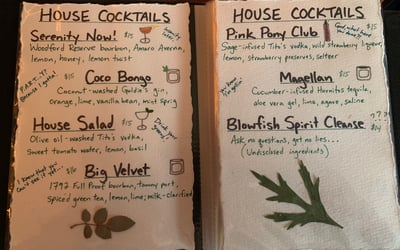 House Cocktails
Serenity Now! $15
Woodford Reserve bourbon, Amaro Averna,
lemon, honey, lemon twist
P.A.R.-T-Y? $15
Because I gotta!
Coco Bongo
Coconut-washed Goldie's gin,
orange, lime, vanilla bean, mint sprig
House Salad $15
Drink your
Olive oil-washed Tito's vodka,
Sweet tomato water, lemon, basil
I know that you
can't see it yet...
Big Velvet
1792 Full Proof bourbon, tawny port,
Spiced green tea, lemon, lime, milk-clarified
House Cocktails
Pink Pony Club $15
Sage-infused Tito's vodka, wild strawberry liqueur,
lemon, strawberry preserves, seltzer
Magellan $15
Cucumber-infused Hornitos tequila,
aloe vera gel, lime, agave, saline
Blowfish Spirit Cleanse
$14
Ask no questions, get no lies...
(Undisclosed ingredients)